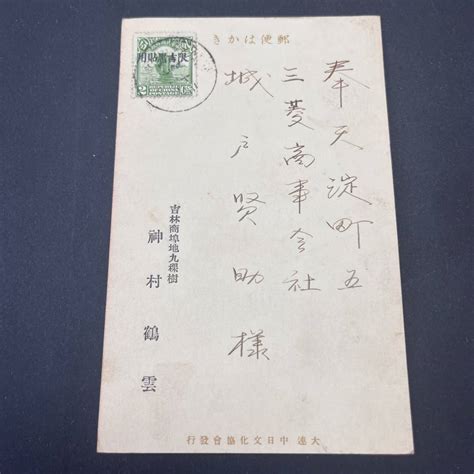 郵便はかき
限吉黑貼用
2
奉天淀町五
三菱商事会社
城戸賢助様
吉林商埠地九棵樹
神村鶴雲
大連 中日文化協會發行